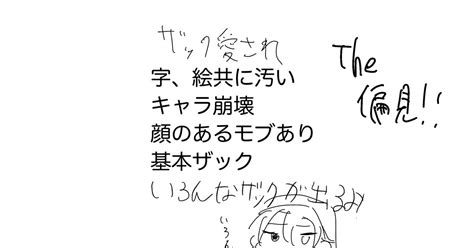 ザック愛され
字、絵共に汚い
キャラ崩壊
顔のあるモブあり
基本ザック
いろんなザックが出るよ
The
偏見!!
いろん